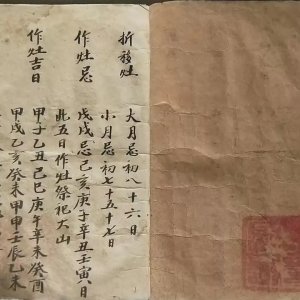 折移灶
大月忌初八十六日
小月忌初七十五十七日
作灶忌
戊戌忌己亥庚子辛丑壬寅日
此五日作灶祭祀大凶
作灶吉日
甲子乙丑己巳庚午辛未癸酉
甲戌乙亥癸未甲申壬辰乙未